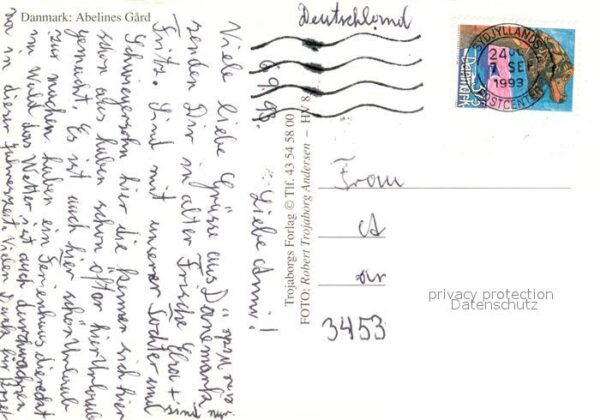 Danmark: Abelines Gård
Deutschland
6.9.93.
Liebe Anni!
Viele liebe Grüsse aus Dänemark
senden Dir in alter Frische Elsa +
Fritz. Sind mit unserer Tochter und
Schwiegersohn hier die kennen sich hier
schon aus haben schon öfter hier Urlaub
gemacht. Es ist auch hier schön Urlaub
zu machen haben ein Ferienhaus direkt
im Wald das Wetter ist auch durchwachsen
in dieser Jahreszeit. Vielen Dank für
Trojaborgs Forlag © Tlf. 43 54 58 00
FOTO: Robert Trojaborg Andersen – HF 8
SYDJYLLANDS
24
7 SEP
1993
POSTCENTER
Danmark
Frau
A
3453
privacy protection
Datenschutz